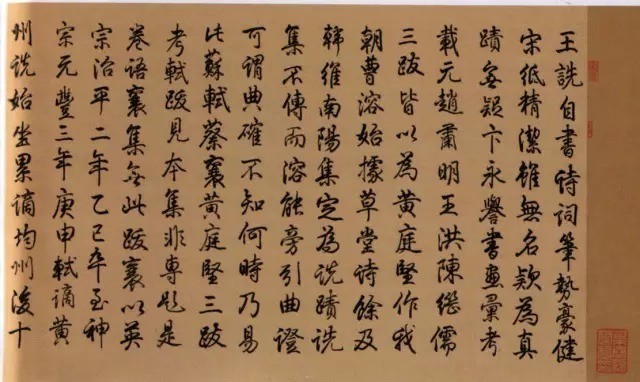 王詵自書诗词筆勢豪健
宋紙精潔雖無名款為真
蹟無疑卞永譽書畫彙考
載元趙肅明王洪陳繼儒
三跋皆以為黃庭堅作我
朝曹溶始據草堂诗餘及
韓維南陽集定為詵蹟詵
集不傳而溶能旁引曲證
可謂典確不知何時乃易
此蘇軾蔡襄黃庭堅三跋
考軾跋見本集非專題是
卷語襄集無此跋襄以英
宗治平二年乙巳卒至神
宗元豐三年庚申軾謫黃
州詵始坐累謫均州後十